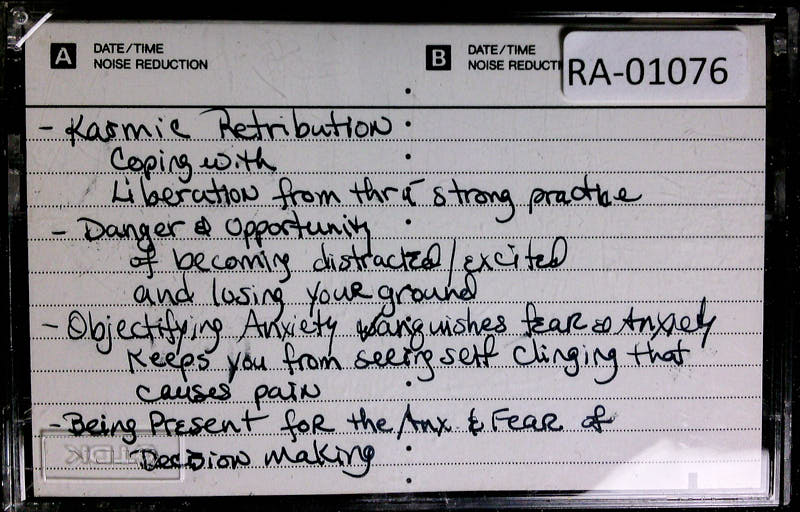 A DATE/TIME NOISE REDUCTION
B DATE/TIME NOISE REDUCTI
RA-01076
- Karmic Retribution
Coping with
Liberation from thru strong practice
- Danger & Opportunity
of becoming distracted/excited
and losing your ground
- Objectifying Anxiety vanquishes fear & Anxiety
Keeps you from seeing self clinging that
causes pain
- Being Present for the Anx & Fear of
Decision making
TDK